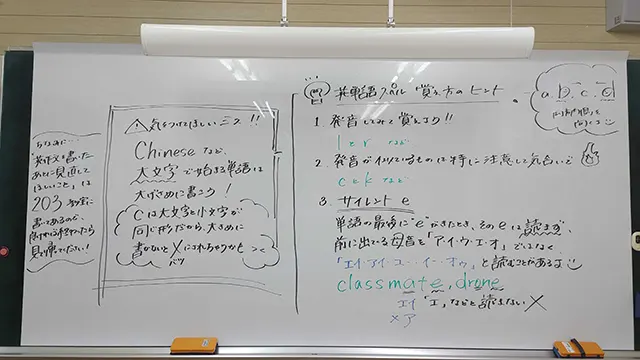 ちなみに…
英作文を書いた
あとに見直して
ほしいこと」は
203教室に
書いてあるので、
見に来てください!
⚠気をつけてほしいミス!!
Chineseなど、
大文字で始まる単語は
大げさめに書こう!
Cは大文字と小文字が
同じ形だから、大きめに
書かないと×にされちゃうかも
バツ
英単語 スペル 覚え方のヒント
a.b.c.d
1. 発音してみて覚えよう!!
lとr など
2. 発音が似ているものは特に注意して気合いで
cとk など
3. サイレント e
単語の最後に"e"がきたとき、そのeは読まず、
前に出てる母音を「ア・イ・ウ・エ・オ」でなく
「エイ・アイ・ユー・イー・オゥ」と読むことがあるよ
classmate, drone
エイ 「エ」などと読まない×
×ア